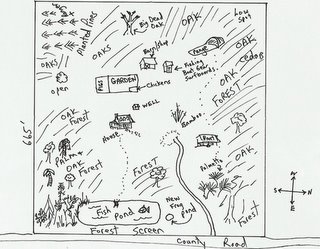 OAK
Low
Spot
Planted Pines
Big Dead
Oak
OAKS
OAK
Cedar
OAK
Fishing
Boat Gear
Surfboards
open
PIGS
GARDEN
Chickens
WELL
OAK
FOREST
OAK
Forest
House
Bamboo
665'
OAK
Palm
Forest
Forest
Palmetto
OAK
Forest
Fish
Pond
New
Frog
Pond
Forest Screen
County Road
S
N